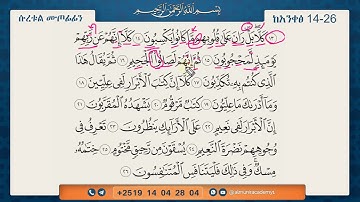 ሱረቱል ሙጦፊፊን
بِسْمِ اللَّهِ الرَّحْمَٰنِ الرَّحِيمِ
ከአንቀፅ 14-26
كَلَّا بَلْ رَانَ عَلَىٰ قُلُوبِهِم مَّا كَانُوا يَكْسِبُونَ ١٤ كَلَّا إِنَّهُمْ عَن رَّبِّهِمْ
يَوْمَئِذٍ لَّمَحْجُوبُونَ ١٥ ثُمَّ إِنَّهُمْ لَصَالُوا الْجَحِيمِ ١٦ ثُمَّ يُقَالُ هَٰذَا
الَّذِي كُنتُم بِهِ تُكَذِّبُونَ ١٧ كَلَّا إِنَّ كِتَابَ الْأَبْرَارِ لَفِي عِلِّيِّينَ ١٨
وَمَا أَدْرَاكَ مَا عِلِّيُّونَ ١٩ كِتَابٌ مَّرْقُومٌ ٢٠ يَشْهَدُهُ الْمُقَرَّبُونَ ٢١
إِنَّ الْأَبْرَارَ لَفِي نَعِيمٍ ٢٢ عَلَى الْأَرَائِكِ يَنظُرُونَ ٢٣ تَعْرِفُ فِي
وُجُوهِهِمْ نَضْرَةَ النَّعِيمِ ٢٤ يُسْقَوْنَ مِن رَّحِيقٍ مَّخْتُومٍ ٢٥ خِتَامُهُ
مِسْكٌ وَفِي ذَٰلِكَ فَلْيَتَنَافَسِ الْمُتَنَافِسُونَ ٢٦
+2519 14 04 28 04